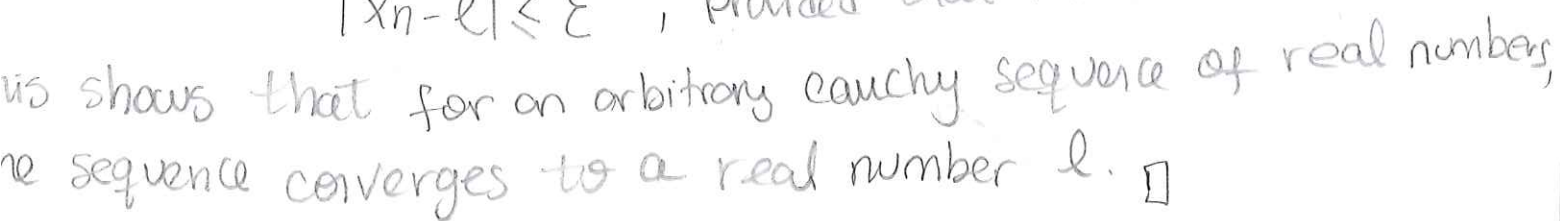 |xn - l| < ε , provided
is shows that for an arbitrary cauchy sequence of real numbers,
e sequence converges to a real number l. □